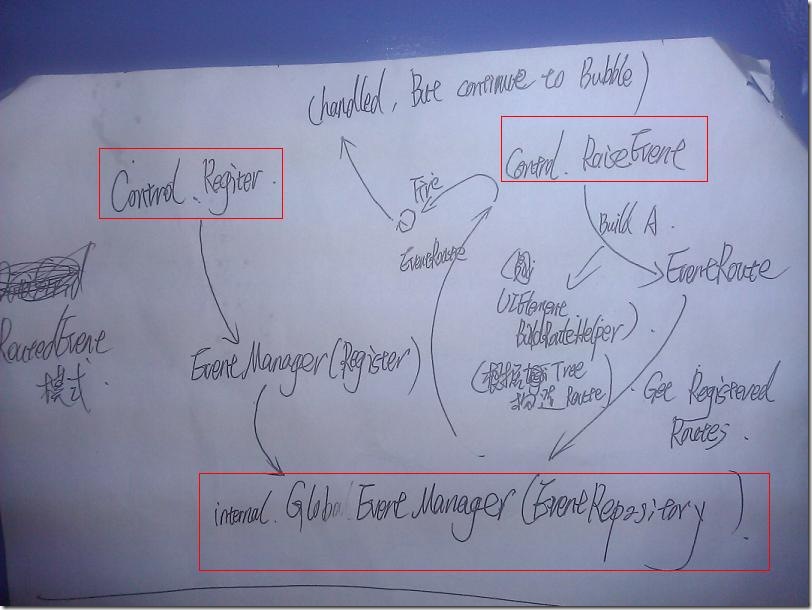 (handled, But continue to Bubble)
Control. RaiseEvent
Control. Regiter.
Fire
Build A.
EventRoute
EventRoute
UIElement.
BuildRouteHelper).
RoutedEvent
模式.
EventManager(Register)
Tree
构造 Route)
Get Registered
Routes.
internal. Global EventManager(EventRepository).